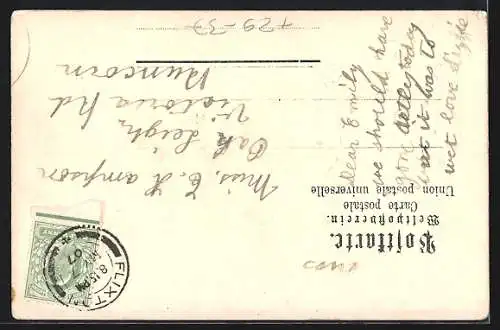 Postkarte.
Weltpostverein.
Carte postale
Union postale universelle
FLIXTON
8.15 PM
07
Miss. E. Hampson
Oak Leigh
Victoria Rd
Runcorn
Dear Emily
we should have
gone today
but it was to
wet love